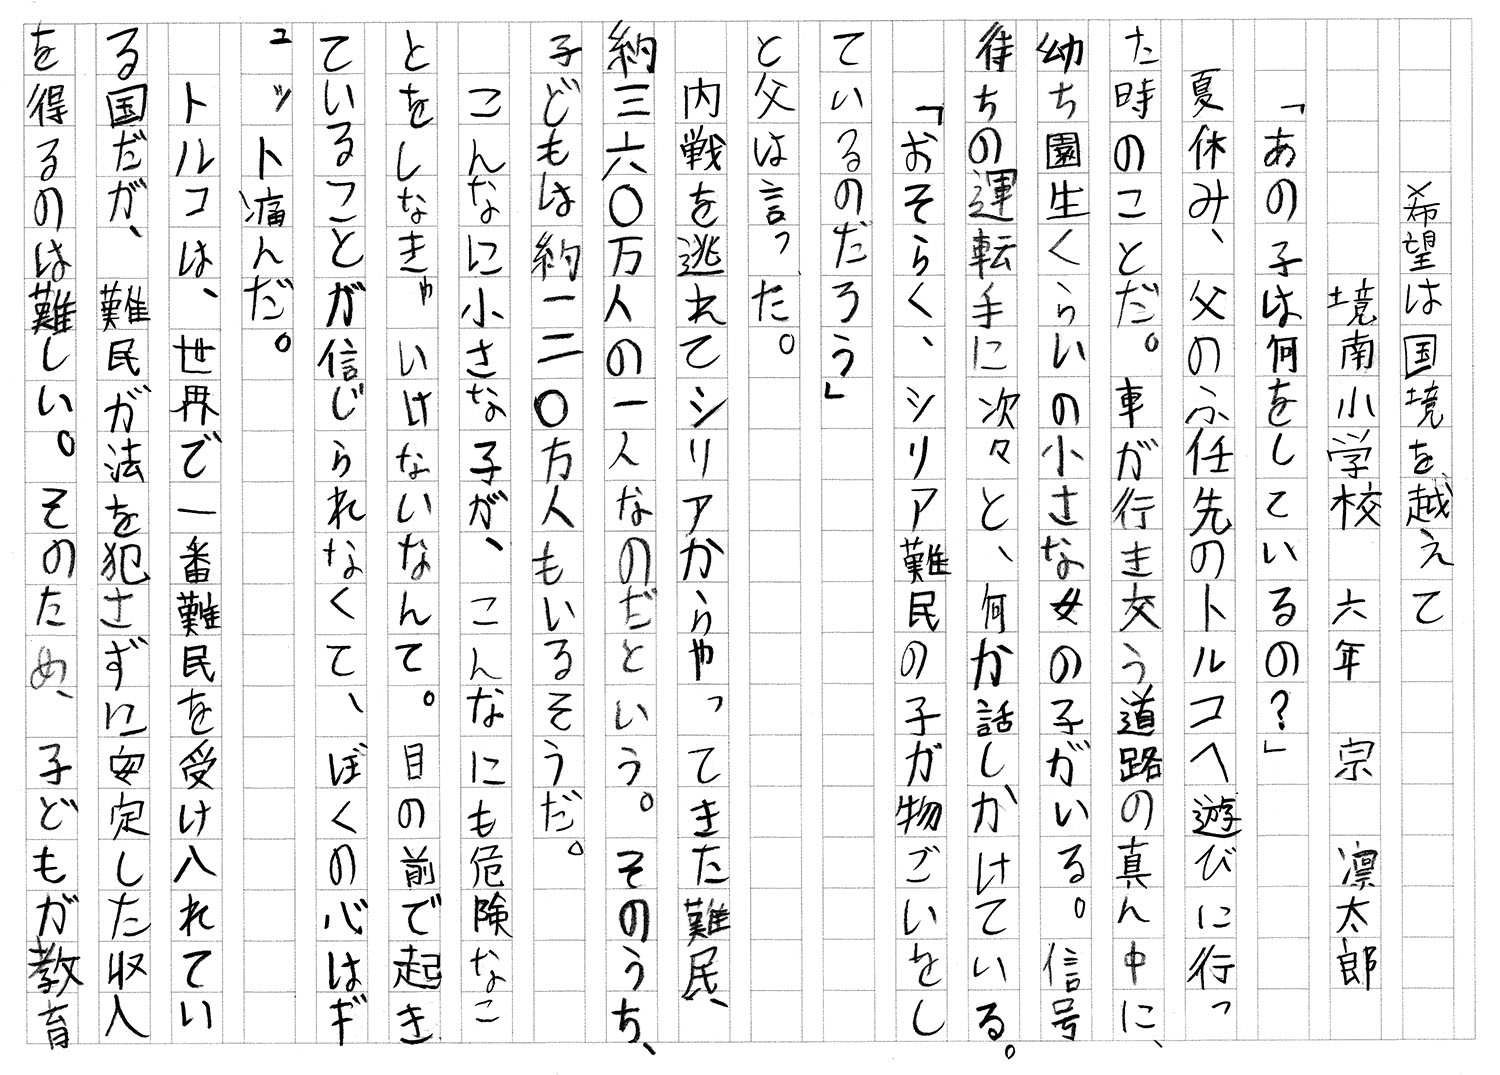 希望は国境を越えて
境南小学校　六年　宗　凛太郎
「あの子は何をしているの？」
夏休み、父のふ任先のトルコへ遊びに行っ
た時のことだ。車が行き交う道路の真ん中に、
幼ち園生くらいの小さな女の子がいる。信号
待ちの運転手に次々と、何か話しかけている。
「おそらく、シリア難民の子が物ごいをし
ているのだろう」
と父は言った。
内戦を逃れてシリアからやってきた難民、
約三六〇万人の一人なのだという。そのうち、
子どもは約一二〇万人もいるそうだ。
こんなに小さな子が、こんなにも危険なこ
とをしなきゃいけないなんて。目の前で起き
ていることが信じられなくて、ぼくの心はギ
ュット痛んだ。
トルコは、世界で一番難民を受け入れてい
る国だが、難民が法を犯さずに安定した収入
を得るのは難しい。そのため、子どもが教育